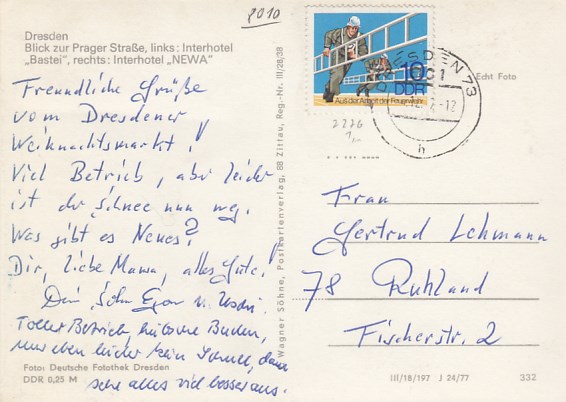 2010
Dresden
Blick zur Prager Straße, links: Interhotel
„Bastei", rechts: Interhotel „NEWA"
Freundliche Grüße
vom Dresdener
Weihnachtsmarkt!
Viel Betrieb, aber leider
ist der Schnee nun weg.
Was gibt es Neues?
Dir, liebe Mama, alles Gute!
Dein Sohn Egon u. Uschi.
Toller Betrieb, hübsche Buden,
nur eben leider kein Schnee, dann
sehe alles viel besser aus.
Foto: Deutsche Fotothek Dresden
DDR 0,25 M
Wagner Söhne, Postkartenverlag, 88 Zittau, Reg.-Nr. III/28/38
10
DDR
Aus der Arbeit der Feuerwehr
DRESDEN 73
-12
h
Echt Foto
2276
Frau
Gertrud Lehmann
78 Ruhland
Fischerstr. 2
III/18/197 J 24/77 332